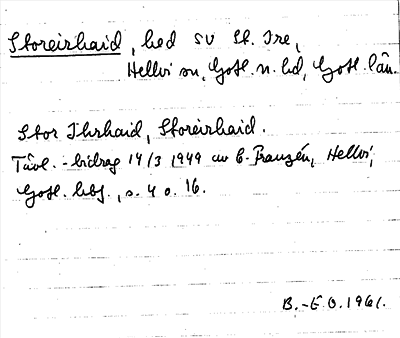 Storeirhaid, hed SV St. Ire,
Hellvi sn, Gotl. n. hd, Gotl. län.
Stor Ihrhaid, Storeirhaid.
Tävl.-bidrag 14/3 1949 av E. Franzén, Hellvi,
Gotl. hbf., s. 4 o. 16.
B.-E.O. 1961.